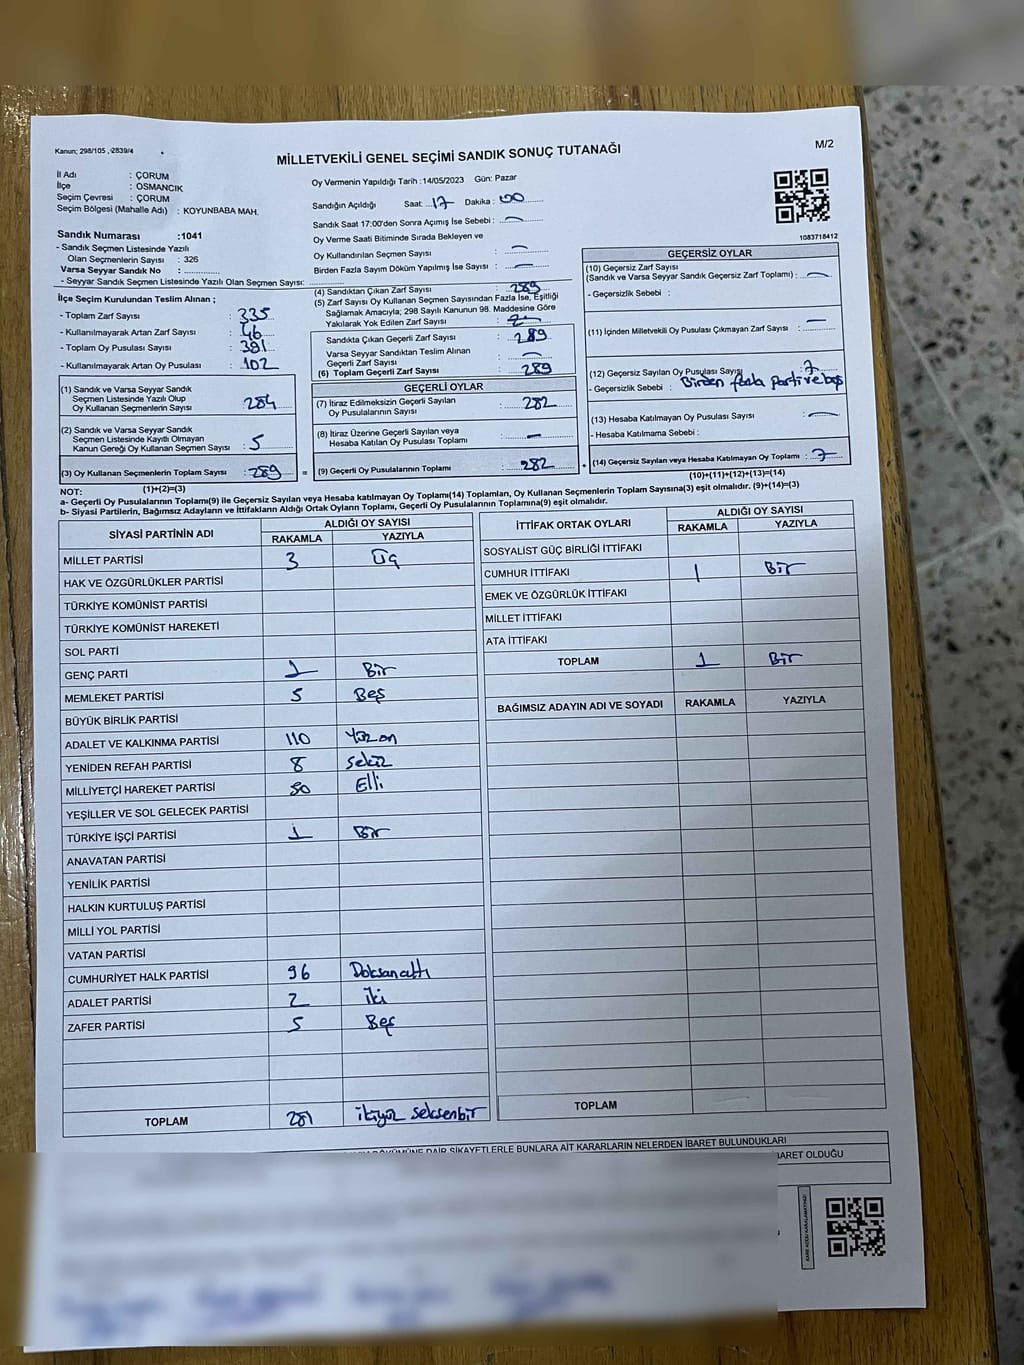 Kanun; 298/105 , 2839/4
MİLLETVEKİLİ GENEL SEÇİMİ SANDIK SONUÇ TUTANAĞI
M/2
İl Adı : ÇORUM
İlçe : OSMANCIK
Seçim Çevresi : ÇORUM
Seçim Bölgesi (Mahalle Adı) : KOYUNBABA MAH.
Sandık Numarası :1041
- Sandık Seçmen Listesinde Yazılı
Olan Seçmenlerin Sayısı : 326
Varsa Seyyar Sandık No :
- Seyyar Sandık Seçmen Listesinde Yazılı Olan Seçmen Sayısı:
Oy Vermenin Yapıldığı Tarih :14/05/2023 Gün: Pazar
Sandığın Açıldığı Saat: 17 Dakika: 00
Sandık Saat 17:00'den Sonra Açımış İse Sebebi :
Oy Verme Saati Bitiminde Sırada Bekleyen ve
Oy Kullandırılan Seçmen Sayısı :
Birden Fazla Sayım Döküm Yapılmış İse Sayısı :
1083718412
İlçe Seçim Kurulundan Teslim Alınan ;
- Toplam Zarf Sayısı : 335
- Kullanılmayarak Artan Zarf Sayısı : 46
- Toplam Oy Pusulası Sayısı : 391
- Kullanılmayarak Artan Oy Pusulası : 102
(1) Sandık ve Varsa Seyyar Sandık
Seçmen Listesinde Yazılı Olup
Oy Kullanan Seçmenlerin Sayısı : 284
(2) Sandık ve Varsa Seyyar Sandık
Seçmen Listesinde Kayıtlı Olmayan
Kanun Gereği Oy Kullanan Seçmen Sayısı : 5
(3) Oy Kullanan Seçmenlerin Toplam Sayısı : 289
(1)+(2)=(3)
(4) Sandıktan Çıkan Zarf Sayısı : 289
(5) Zarf Sayısı Oy Kullanan Seçmen Sayısından Fazla İse, Eşitliği
Sağlamak Amacıyla; 298 Sayılı Kanunun 98. Maddesine Göre
Yakılarak Yok Edilen Zarf Sayısı :
Sandıkta Çıkan Geçerli Zarf Sayısı : 289
Varsa Seyyar Sandıktan Teslim Alınan
Geçerli Zarf Sayısı :
(6) Toplam Geçerli Zarf Sayısı : 289
GEÇERLİ OYLAR
(7) İtiraz Edilmeksizin Geçerli Sayılan
Oy Pusulalarının Sayısı : 282
(8) İtiraz Üzerine Geçerli Sayılan veya
Hesaba Katılan Oy Pusulası Toplamı :
= (9) Geçerli Oy Pusulalarının Toplamı : 282
GEÇERSİZ OYLAR
(10) Geçersiz Zarf Sayısı
(Sandık ve Varsa Seyyar Sandık Geçersiz Zarf Toplamı) :
- Geçersizlik Sebebi :
(11) İçinden Milletvekili Oy Pusulası Çıkmayan Zarf Sayısı :
(12) Geçersiz Sayılan Oy Pusulası Sayısı : 7
- Geçersizlik Sebebi : Birden fazla parti ve boş
(13) Hesaba Katılmayan Oy Pusulası Sayısı :
- Hesaba Katılmama Sebebi :
+ (14) Geçersiz Sayılan veya Hesaba Katılmayan Oy Toplamı : 7
(10)+(11)+(12)+(13)=(14)
NOT:
a- Geçerli Oy Pusulalarının Toplamı(9) ile Geçersiz Sayılan veya Hesaba katılmayan Oy Toplamı(14) Toplamları, Oy Kullanan Seçmenlerin Toplam Sayısına(3) eşit olmalıdır. (9)+(14)=(3)
b- Siyasi Partilerin, Bağımsız Adayların ve İttifakların Aldığı Ortak Oyların Toplamı, Geçerli Oy Pusulalarının Toplamına(9) eşit olmalıdır.
SİYASİ PARTİNİN ADI ALDIĞI OY SAYISI
RAKAMLA YAZIYLA
MİLLET PARTİSİ 3 Üç
HAK VE ÖZGÜRLÜKLER PARTİSİ
TÜRKİYE KOMÜNİST PARTİSİ
TÜRKİYE KOMÜNİST HAREKETİ
SOL PARTİ
GENÇ PARTİ 1 Bir
MEMLEKET PARTİSİ 5 Beş
BÜYÜK BİRLİK PARTİSİ
ADALET VE KALKINMA PARTİSİ 110 Yüz on
YENİDEN REFAH PARTİSİ 8 Sekiz
MİLLİYETÇİ HAREKET PARTİSİ 50 Elli
YEŞİLLER VE SOL GELECEK PARTİSİ
TÜRKİYE İŞÇİ PARTİSİ 1 Bir
ANAVATAN PARTİSİ
YENİLİK PARTİSİ
HALKIN KURTULUŞ PARTİSİ
MİLLİ YOL PARTİSİ
VATAN PARTİSİ
CUMHURİYET HALK PARTİSİ 96 Doksanaltı
ADALET PARTİSİ 2 İki
ZAFER PARTİSİ 5 Beş
TOPLAM 281 ikiyüz seksenbir
İTTİFAK ORTAK OYLARI ALDIĞI OY SAYISI
RAKAMLA YAZIYLA
SOSYALİST GÜÇ BİRLİĞİ İTTİFAKI
CUMHUR İTTİFAKI 1 Bir
EMEK VE ÖZGÜRLÜK İTTİFAKI
MİLLET İTTİFAKI
ATA İTTİFAKI
TOPLAM 1 Bir
BAĞIMSIZ ADAYIN ADI VE SOYADI RAKAMLA YAZIYLA
TOPLAM
DÖKÜMÜNE DAİR ŞİKAYETLERLE BUNLARA AİT KARARLARIN NELERDEN İBARET BULUNDUKLARI
İBARET OLDUĞU